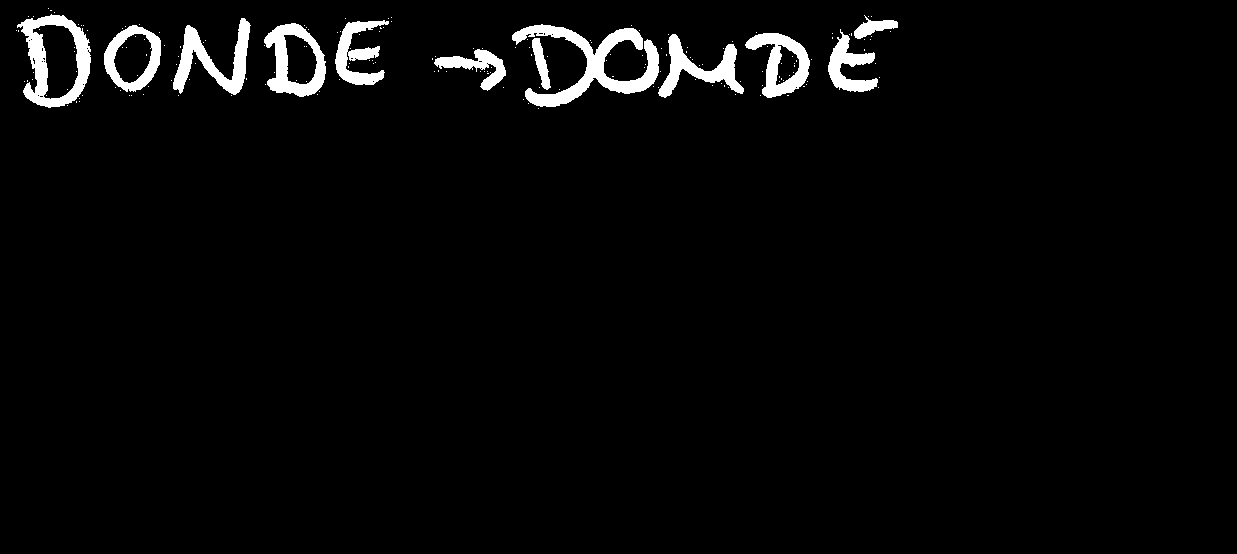 DONDE → DOMDE